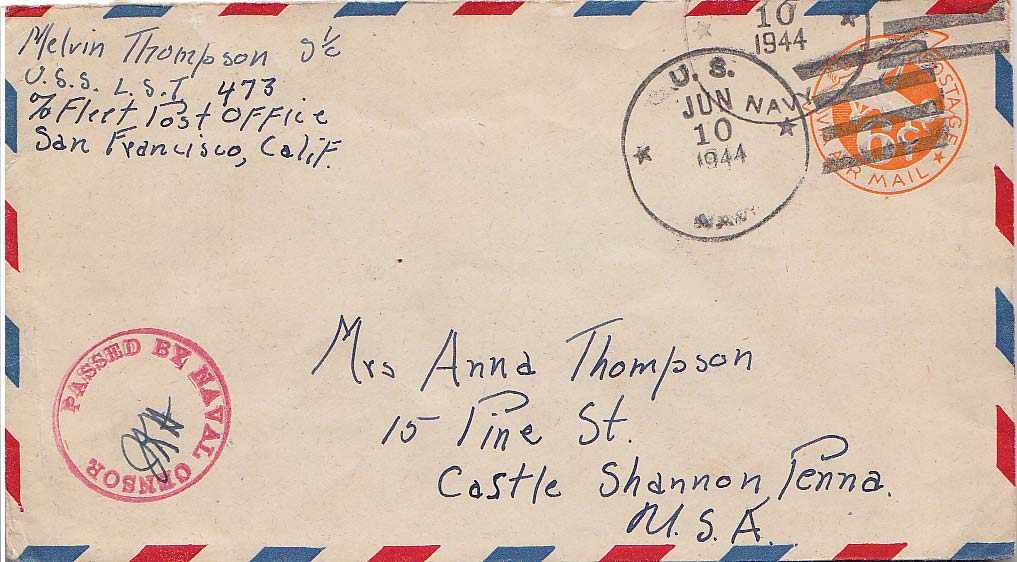 Melvin Thompson S 1/c
U.S.S. L.S.T 473
c/o Fleet Post Office
San Francisco, Calif.
10
1944
NAVY
U.S.
JUN
10
1944
NAVY
POSTAGE
6¢
AIR MAIL
PASSED BY NAVAL CENSOR
Mrs Anna Thompson
15 Pine St.
Castle Shannon, Penna.
U.S.A.